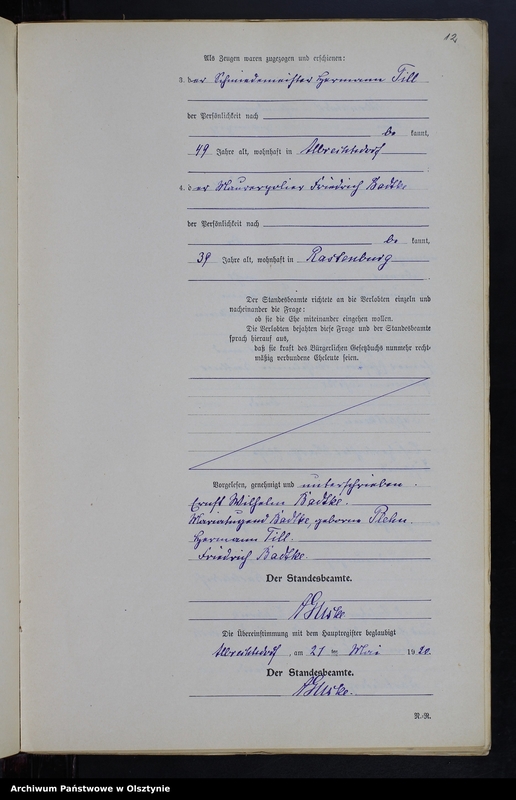 12.
Als Zeugen waren zugezogen und erschienen:
3. der Schmiedemeister Hermann Till
der Persönlichkeit nach
be kannt,
49 Jahre alt, wohnhaft in Albrechtsdorf
4. der Maurerpolier Friedrich Badtke
der Persönlichkeit nach
be kannt,
39 Jahre alt, wohnhaft in Rastenburg
Der Standesbeamte richtete an die Verlobten einzeln und
nacheinander die Frage:
ob sie die Ehe miteinander eingehen wollen.
Die Verlobten bejahten diese Frage und der Standesbeamte
sprach hierauf aus,
daß sie kraft des Bürgerlichen Gesetzbuchs nunmehr recht-
mäßig verbundene Eheleute seien.
Vorgelesen, genehmigt und unterschrieben.
Ernst Wilhelm Badtke.
Badtke, geborne Plehn.
Hermann Till.
Friedrich Badtke.
Der Standesbeamte.
Die Übereinstimmung mit dem Hauptregister beglaubigt
Albrechtsdorf, am 21 ten Mai 1920.
Der Standesbeamte.
N.-R.
Archiwum Państwowe w Olsztynie